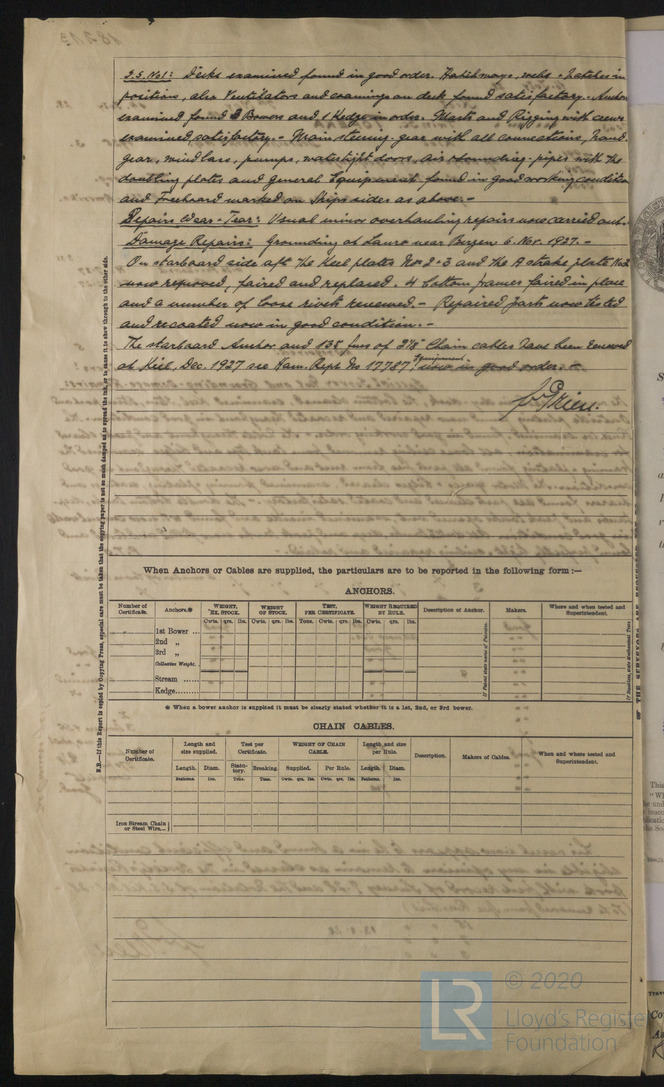 S.S. No1: Decks examined found in good order. Hatchways, webs & hatches in
positions, also Ventilators and coamings on deck found satisfactory. Anchors
examined found 2 Bowers and 1 Kedge in order. Masts and Rigging with
examined, satisfactory. - Main steering gear with all connections, hand
gear, windlass, pumps, watertight doors, air & sounding-pipes with the
doubling plates and general Equipment found in good working condition
and Freeboard marked on Ships sides as above. -
Repairs Wear & Tear: Usual minor overhauling repairs now carried out. -
Damage Repairs: Grounding at near Bergen 6. Nov. 1927. -
On starboard side aft the Keel plates No 2 & 3 and the A strake plate No 2
now removed, faired and replaced. 4 bottom frames faired in place
and a number of loose rivets renewed. - Repaired part now tested
and recoated now in good condition. -
The starboard Anchor and 135 fms of Chain cables have been renewed
at Kiel, Dec. 1927 see Ham. Rept No 17787. Equipment now in good order. -
N.B.—If this Report is copied by Copying Press, especial care must be taken that the copying paper is not so much damped as to spread the ink, or to cause it to show through to the other side.
When Anchors or Cables are supplied, the particulars are to be reported in the following form :—
ANCHORS.
Number of Certificate. Anchors.* WEIGHT, EX. STOCK. WEIGHT OF STOCK. TEST, PER CERTIFICATE. WEIGHT REQUIRED BY RULE. Description of Anchor. Makers. Where and when tested and Superintendent.
Cwts. qrs. lbs. Cwts. qrs. lbs. Tons. Cwts. qrs. lbs. Cwts. qrs. lbs.
1st Bower ...
2nd „
3rd „
Collective Weight.
Stream ......
Kedge........
If Patent state name of Patentee.
* When a bower anchor is supplied it must be clearly stated whether it is a 1st, 2nd, or 3rd bower.
CHAIN CABLES.
Number of Certificate. Length and size supplied. Test per Certificate. WEIGHT OF CHAIN CABLE. Length and size per Rule. Description. Makers of Cables. Where and when tested and Superintendent.
Length. Diam. Statutory. Breaking. Supplied. Per Rule. Length. Diam.
Fathoms. Ins. Tons. Tons. Cwts. qrs. lbs. Cwts. qrs. lbs. Fathoms. Ins.
Iron Stream Chain or Steel Wire...
© 2020
LR
Lloyd's Register
Foundation